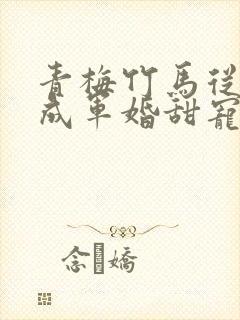 青梅竹馬從
成軍婚甜寵
念 嬌